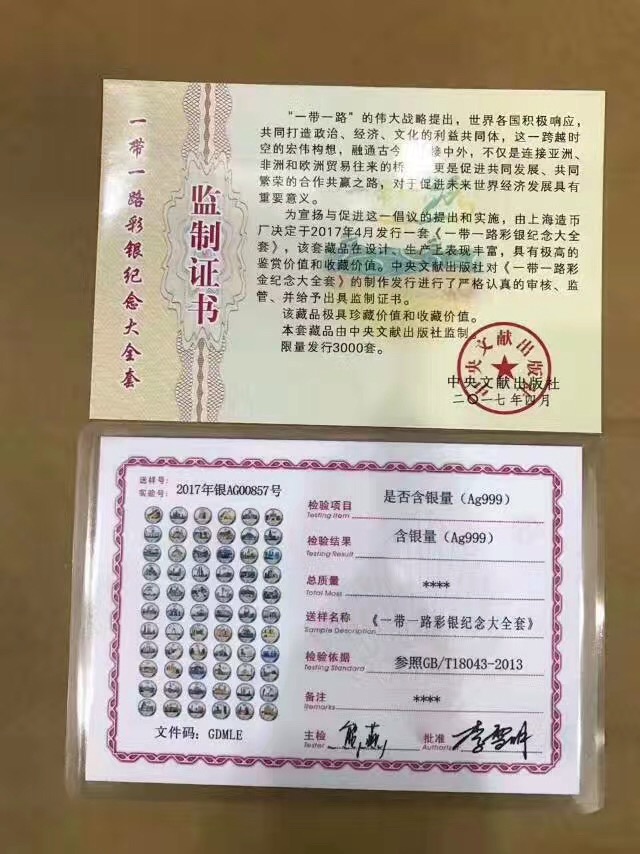 一带一路彩银纪念大全套
监制证书
“一带一路”的伟大战略提出，世界各国积极响应，
共同打造政治、经济、文化的利益共同体，这一跨越时
空的宏伟构想，融通古今 接中外，不仅是连接亚洲、
非洲和欧洲贸易往来的桥 更是促进共同发展、共同
繁荣的合作共赢之路，对于促进未来世界经济发展具有
重要意义。
为宣扬与促进这一倡议的提出和实施，由上海造币
厂决定于2017年4月发行一套《一带一路彩银纪念大全
套》，该套藏品在设计、生产上表现丰富，具有极高的
鉴赏价值和收藏价值。中央文献出版社对《一带一路彩
金纪念大全套》的制作发行进行了严格认真的审核、监
管、并给予出具监制证书。
该藏品极具珍藏价值和收藏价值。
本套藏品由中央文献出版社监制。
限量发行3000套。
中央文献出版社
中央文献出版社
二〇一七年四月
送样号：
实验号： 2017年银AG00857号
文件码：GDMLE
检验项目 是否含银量（Ag999）
Testing Item
检验结果 含银量（Ag999）
Testing Result
总质量 ****
Total Mass
送样名称 《一带一路彩银纪念大全套》
Sample Description
检验依据 参照GB/T18043-2013
Testing Standard
备注 ****
Remarks
主检 批准 李雪明
Tester Author